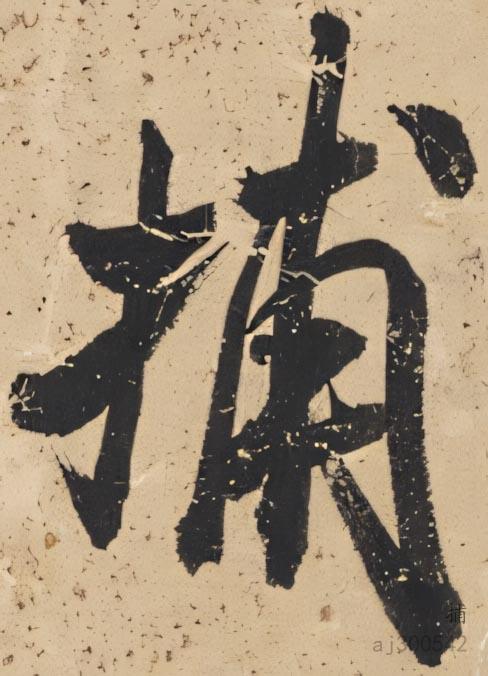 捕
捕
aj300542